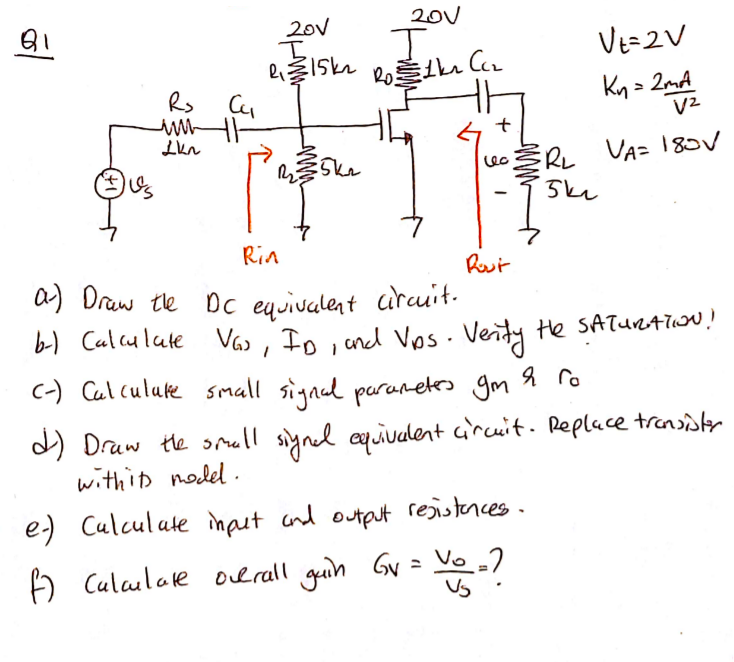 Q1
20V 20V
Vt=2V
R1 15kΩ RD 1kΩ CC2
Kn = 2mA/V²
Rs CC1
1kΩ
+
R2 5kΩ vo RL VA= 180V
vs - 5kΩ
Rin Rout
a-) Draw the DC equivalent circuit.
b-) Calculate VGS, ID, and VDS. Verify the SATURATION!
c-) Calculate small signal parameters gm & ro
d-) Draw the small signal equivalent circuit. Replace transistor
with its model.
e-) Calculate input and output resistances.
f-) Calculate overall gain Gv = Vo/Vs = ?